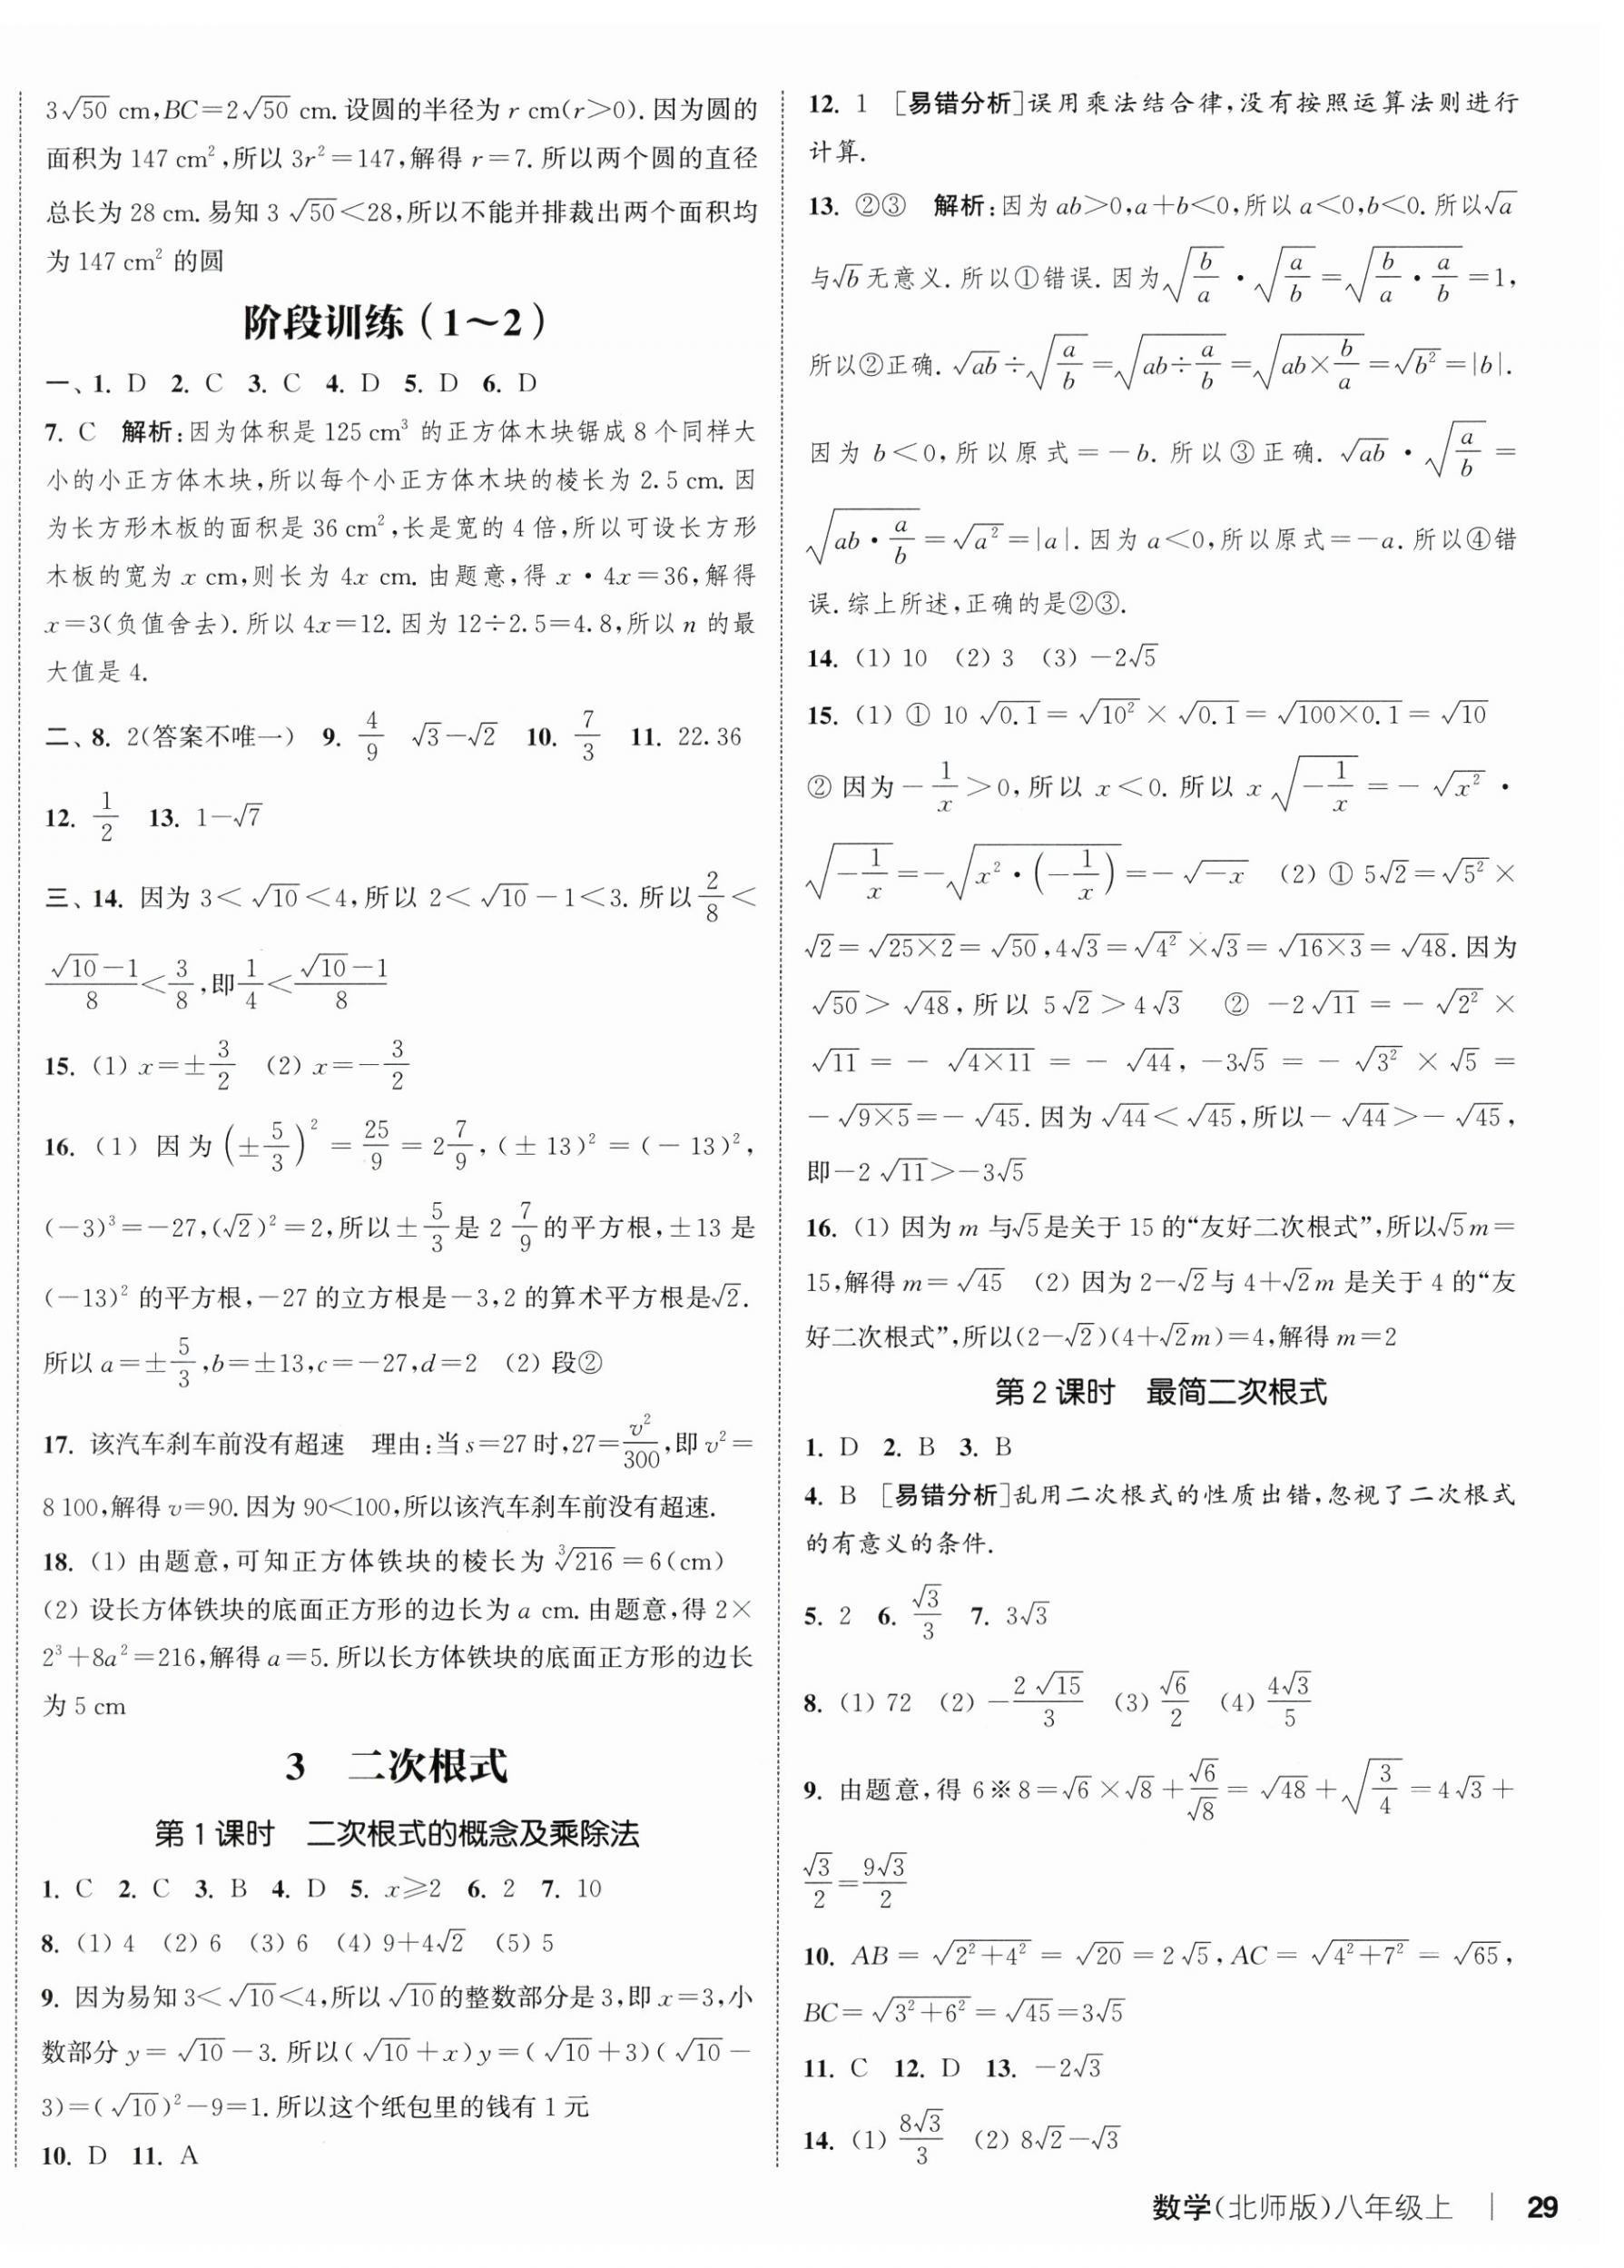 3√50 cm,BC=2√50 cm. 设圆的半径为 r cm(r>0). 因为圆的
面积为 147 cm²,所以 3r²=147,解得 r=7. 所以两个圆的直径
总长为 28 cm. 易知 3 √50<28,所以不能并排裁出两个面积均
为 147 cm² 的圆
阶段训练(1～2)
一、1. D 2. C 3. C 4. D 5. D 6. D
7. C 解析:因为体积是 125 cm³ 的正方体木块锯成 8 个同样大
小的小正方体木块,所以每个小正方体木块的棱长为 2.5 cm. 因
为长方形木板的面积是 36 cm²,长是宽的 4 倍,所以可设长方形
木板的宽为 x cm,则长为 4x cm. 由题意,得 x·4x=36,解得
x=3(负值舍去). 所以 4x=12. 因为 12÷2.5=4.8,所以 n 的最
大值是 4.
二、8. 2(答案不唯一) 9. 4/9 √3-√2 10. 7/3 11. 22.36
12. 1/2 13. 1-√7
三、14. 因为 3<√10<4,所以 2<√10-1<3. 所以 2/8<
(√10-1)/8<3/8,即 1/4<(√10-1)/8
15. (1) x=±3/2 (2) x=-3/2
16. (1) 因为 (±5/3)²=25/9=2 7/9,(±13)²=(-13)²,
(-3)³=-27,(√2)²=2,所以±5/3 是 2 7/9 的平方根,±13 是
(-13)² 的平方根,-27 的立方根是-3,2 的算术平方根是√2.
所以 a=±5/3,b=±13,c=-27,d=2 (2) 段②
17. 该汽车刹车前没有超速 理由:当 s=27 时,27=v²/300,即 v²=
8 100,解得 v=90. 因为 90<100,所以该汽车刹车前没有超速.
18. (1) 由题意,可知正方体铁块的棱长为 ³√216=6(cm)
(2) 设长方体铁块的底面正方形的边长为 a cm. 由题意,得 2×
2³+8a²=216,解得 a=5. 所以长方体铁块的底面正方形的边长
为 5 cm
3 二次根式
第 1 课时 二次根式的概念及乘除法
1. C 2. C 3. B 4. D 5. x≥2 6. 2 7. 10
8. (1) 4 (2) 6 (3) 6 (4) 9+4√2 (5) 5
9. 因为易知 3<√10<4,所以√10的整数部分是 3,即 x=3,小
数部分 y=√10-3. 所以(√10+x)y=(√10+3)(√10-
3)=(√10)²-9=1. 所以这个纸包里的钱有 1 元
10. D 11. A
12. 1 [易错分析]误用乘法结合律,没有按照运算法则进行
计算.
13. ②③ 解析:因为 ab>0,a+b<0,所以 a<0,b<0. 所以√a
与√b无意义. 所以①错误. 因为√(b/a)·√(a/b)=√(b/a·a/b)=1,
所以②正确. √(ab)÷√(a/b)=√(ab÷a/b)=√(ab×b/a)=√(b²)=|b|.
因为 b<0,所以原式=-b. 所以③正确. √(ab)·√(a/b)=
√(ab·a/b)=√(a²)=|a|. 因为 a<0,所以原式=-a. 所以④错
误. 综上所述,正确的是②③.
14. (1) 10 (2) 3 (3) -2√5
15. (1) ① 10 √0.1=√(10²)×√0.1=√(100×0.1)=√10
② 因为-1/x>0,所以 x<0. 所以 x√(-1/x)=-√(x²)·
√(-1/x)=-√(x²·(-1/x))=-√(-x) (2) ① 5√2=√(5²)×
√2=√(25×2)=√50,4√3=√(4²)×√3=√(16×3)=√48. 因为
√50>√48,所以 5√2>4√3 ② -2√11=-√(2²)×
√11=-√(4×11)=-√44,-3√5=-√(3²)×√5=
-√(9×5)=-√45. 因为√44<√45,所以-√44>-√45,
即-2√11>-3√5
16. (1) 因为 m 与√5是关于 15 的“友好二次根式”,所以√5m=
15,解得 m=√45 (2) 因为 2-√2与 4+√2m 是关于 4 的“友
好二次根式”,所以(2-√2)(4+√2m)=4,解得 m=2
第 2 课时 最简二次根式
1. D 2. B 3. B
4. B [易错分析]乱用二次根式的性质出错,忽视了二次根式
的有意义的条件.
5. 2 6. √3/3 7. 3√3
8. (1) 72 (2) -2√15/3 (3) √6/2 (4) 4√3/5
9. 由题意,得 6※8=√6×√8+√6/√8=√48+√(3/4)=4√3+
√3/2=9√3/2
10. AB=√(2²+4²)=√20=2√5,AC=√(4²+7²)=√65,
BC=√(3²+6²)=√45=3√5
11. C 12. D 13. -2√3
14. (1) 8√3/3 (2) 8√2-√3
数学(北师版)八年级上 | 29